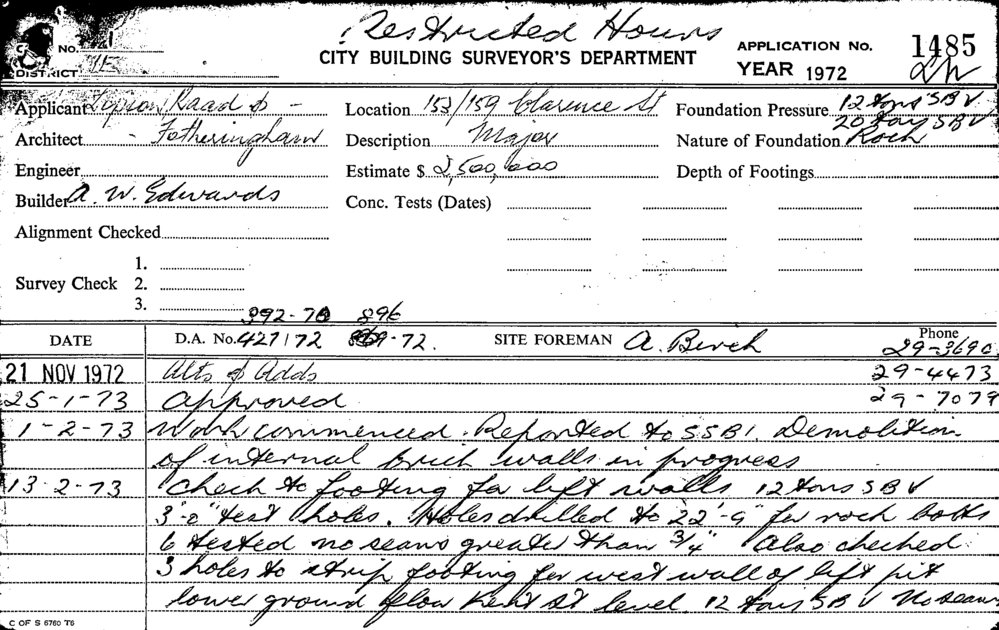 Restricted Hours
CITY BUILDING SURVEYOR'S DEPARTMENT
C
NO. 1
DISTRICT 1E
APPLICATION NO. 1485
YEAR 1972
Applicant Lipson, Kaad &
Location 153/159 Clarence St
Foundation Pressure 12 tons SBV
20 tons SBV
Architect - Fotheringham
Description Major
Nature of Foundation Rock
Engineer
Estimate $ 2,500,000
Depth of Footings
Builder A. W. Edwards
Conc. Tests (Dates)
Alignment Checked
Survey Check
1.
2.
3.
392-72 896
DATE
D.A. No. 427/72 -72.
SITE FOREMAN A. Birch
Phone
29-3690
21 NOV 1972 Alts & Adds 29-4473
25-1-73 Approved 29-7079
1-2-73 Work commenced. Reported to SSBI. Demolition
of internal brick walls in progress
13-2-73 Check to footing for lift walls 12 tons SBV
3'-0" test holes. Holes drilled to 22'-9" for rock bolts
6 tested no seams greater than 3/4" Also checked
3 holes to strip footing for west wall of lift pit
lower ground floor Kent St level 12 tons SBV No seams
C OF S 6760 T6